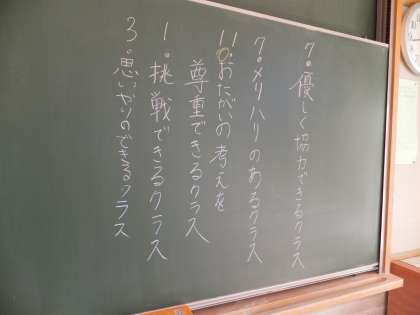 7。優しく協力できるクラス
7。メリハリのあるクラス
11。おたがいの考えを
尊重できるクラス
1。挑戦できるクラス
3。思いやりのできるクラス